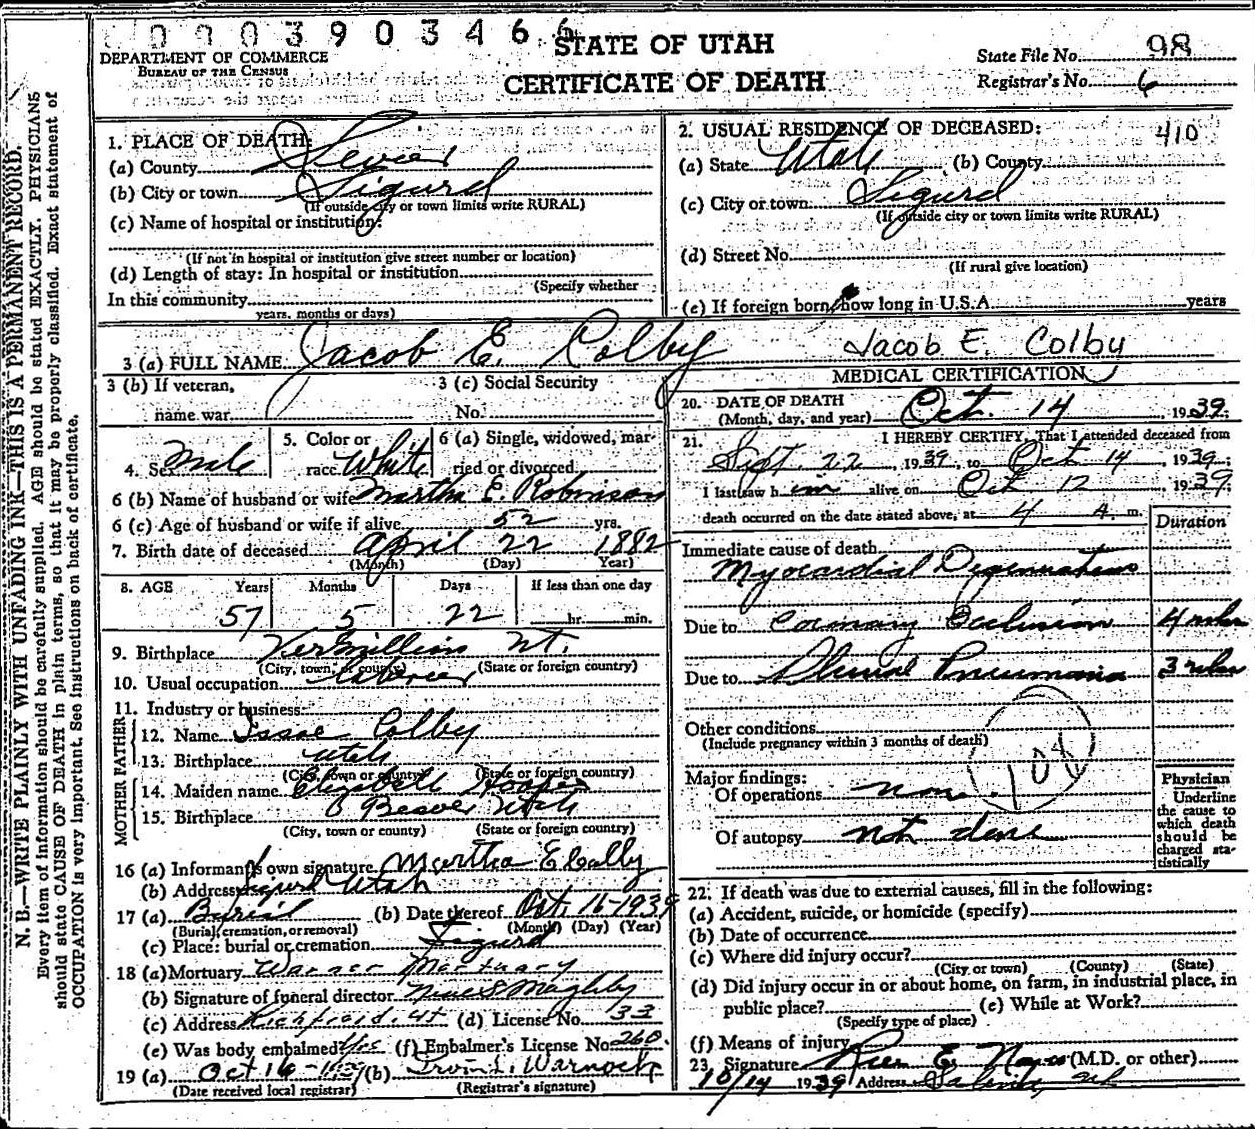 0003903466
STATE OF UTAH
CERTIFICATE OF DEATH
DEPARTMENT OF COMMERCE
BUREAU OF THE CENSUS
State File No. 98
Registrar's No. 6
N. B.—WRITE PLAINLY WITH UNFADING INK—THIS IS A PERMANENT RECORD.
Every item of information should be carefully supplied. AGE should be stated EXACTLY. PHYSICIANS
should state CAUSE OF DEATH in plain terms, so that it may be properly classified. Exact statement of
OCCUPATION is very important. See instructions on back of certificate.
1. PLACE OF DEATH:
(a) County Sevier
(b) City or town Sigurd
(If outside city or town limits write RURAL)
(c) Name of hospital or institution:
(If not in hospital or institution give street number or location)
(d) Length of stay: In hospital or institution
(Specify whether
In this community
years, months or days)
2. USUAL RESIDENCE OF DECEASED: 410
(a) State Utah (b) County
(c) City or town Sigurd
(If outside city or town limits write RURAL)
(d) Street No.
(If rural give location)
(e) If foreign born, how long in U.S.A. years
3 (a) FULL NAME Jacob E. Colby Jacob E. Colby
3 (b) If veteran,
name war
3 (c) Social Security
No.
4. Sex Male
5. Color or
race White
6 (a) Single, widowed, mar-
ried or divorced
6 (b) Name of husband or wife Martha E. Robinson
6 (c) Age of husband or wife if alive 52 yrs.
7. Birth date of deceased April 22 1882
(Month) (Day) (Year)
8. AGE Years Months Days If less than one day
57 5 22 hr. min.
9. Birthplace Vermillion Ut.
(City, town, or county) (State or foreign country)
10. Usual occupation Laborer
11. Industry or business:
FATHER
12. Name Isaac Colby
13. Birthplace Utah
(City, town or county) (State or foreign country)
MOTHER
14. Maiden name Elizabeth
15. Birthplace Beaver Utah
(City, town or county) (State or foreign country)
16 (a) Informant's own signature Martha E Colby
(b) Address Sigurd Utah
17 (a) Burial (b) Date thereof Oct. 16-1939
(Burial, cremation, or removal) (Month) (Day) (Year)
(c) Place: burial or cremation Sigurd
18 (a) Mortuary Warner Mortuary
(b) Signature of funeral director
(c) Address Richfield, Ut (d) License No. 33
(e) Was body embalmed? Yes (f) Embalmer's License No. 260
19 (a) Oct 16-1939 (b) Irvin L. Warnock
(Date received local registrar) (Registrar's signature)
MEDICAL CERTIFICATION
20. DATE OF DEATH
(Month, day, and year) Oct. 14, 1939;
21. I HEREBY CERTIFY, That I attended deceased from
Sept. 22, 1939, to Oct 14, 1939;
I last saw him alive on Oct 12, 1939;
death occurred on the date stated above, at 4 A. m.
Duration
Immediate cause of death
Myocardial Degeneration
Due to Coronary Occlusion 4 wks
Due to Pneumonia 3 wks
Other conditions
(Include pregnancy within 3 months of death)
104
Major findings:
Of operations none
Of autopsy not done
Physician
Underline
the cause to
which death
should be
charged sta-
tistically
22. If death was due to external causes, fill in the following:
(a) Accident, suicide, or homicide (specify)
(b) Date of occurrence
(c) Where did injury occur?
(City or town) (County) (State)
(d) Did injury occur in or about home, on farm, in industrial place, in
public place? (e) While at Work?
(Specify type of place)
(f) Means of injury
23. Signature Rae E. Noyes (M.D. or other)
10/14 1939 Address Salina, Ut